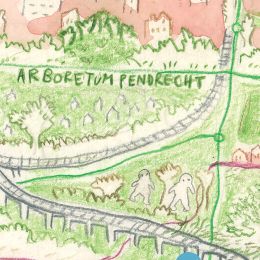 ARBORETUM PENDRECHT